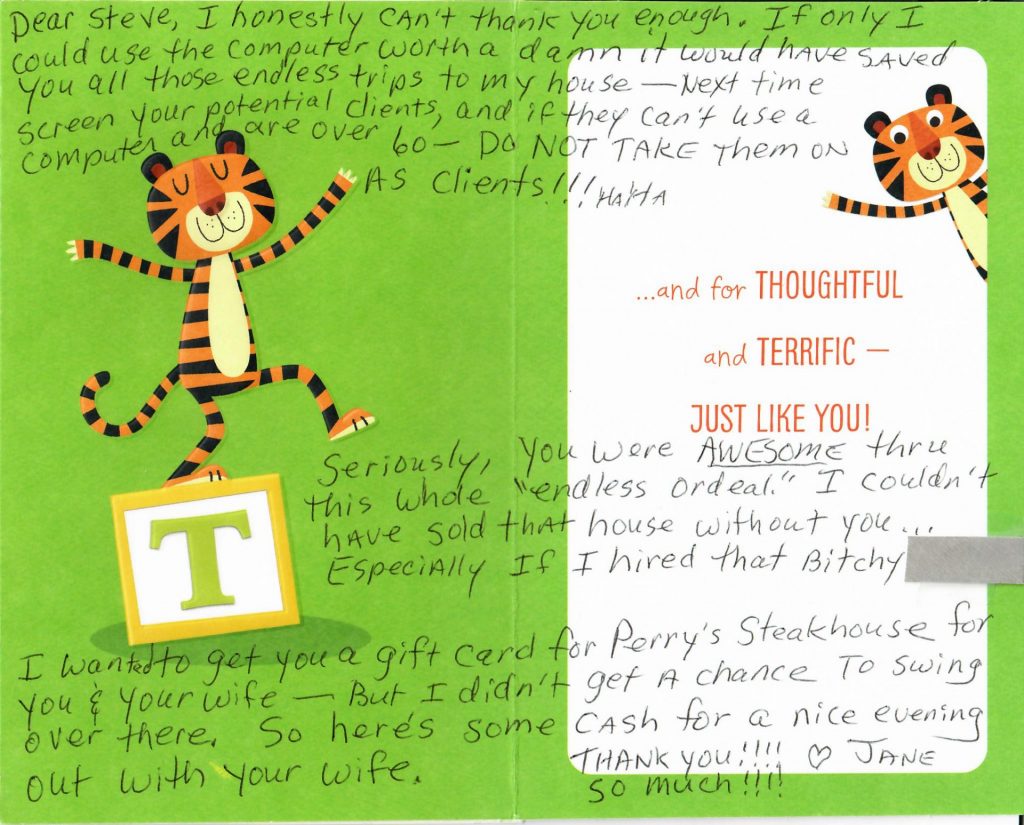 Dear Steve, I honestly CAn't thank you enough. If only I
could use the computer worth a damn it would hAve sAved
you all those endless trips to my house — Next time
screen your potential clients, and if they can't use a
computer and are over 60 — DO NOT TAKE them ON
AS clients!!! HAHA
...and for THOUGHTFUL
and TERRIFIC —
JUST LIKE YOU!
Seriously, you were AWESOME thru
this whole "endless ordeal." I couldn't
hAve sold thAt house without you...
EspeciAlly If I hired that Bitchy
T
I wanted to get you a gift card for Perry's Steakhouse for
you & your wife — But I didn't get A chance To swing
over there. So here's some CASH for a nice evening
out with your wife. THANK YOU!!!! ♡ JANE
so much!!!!